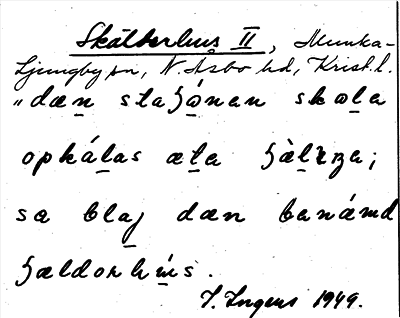 Skälderhus II, Munka-
Ljungby sn, N. Åsbo hd, Krist. l.
"dæn staʃónan skola
opkálas æta ʃæ̀lrza;
sa blaj dæn banámd
ʃældorhús.
J. Ingers 1949.